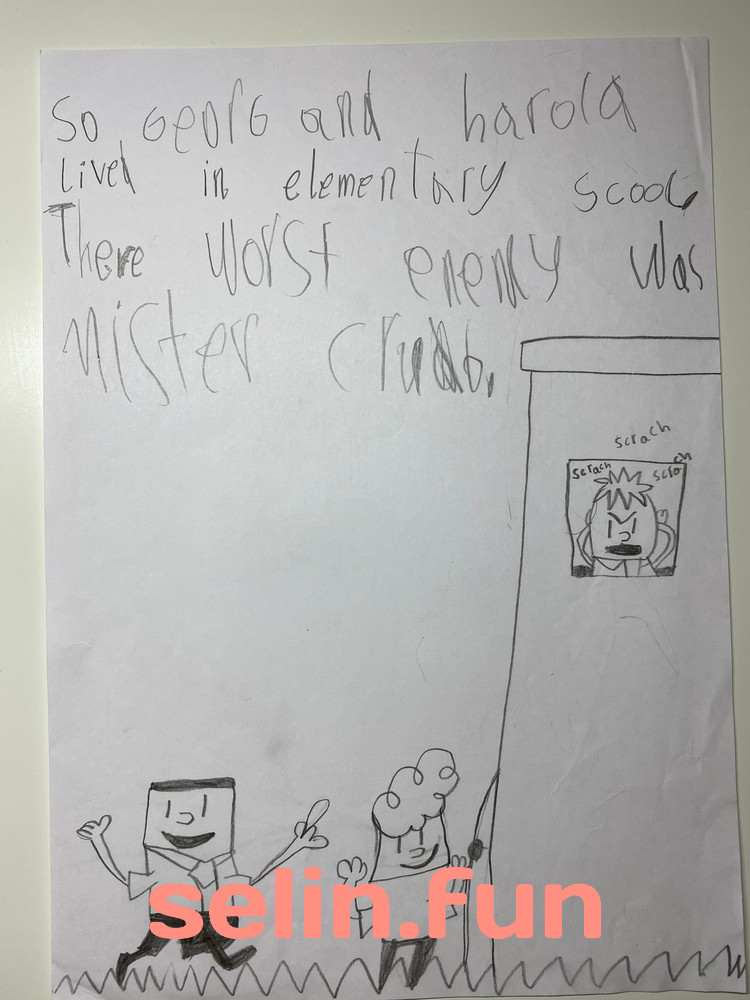 So georg and harold
Lived in elementary scool
There worst enemy was
Mister crubb.
scrach
scrach
scrach
selin.fun